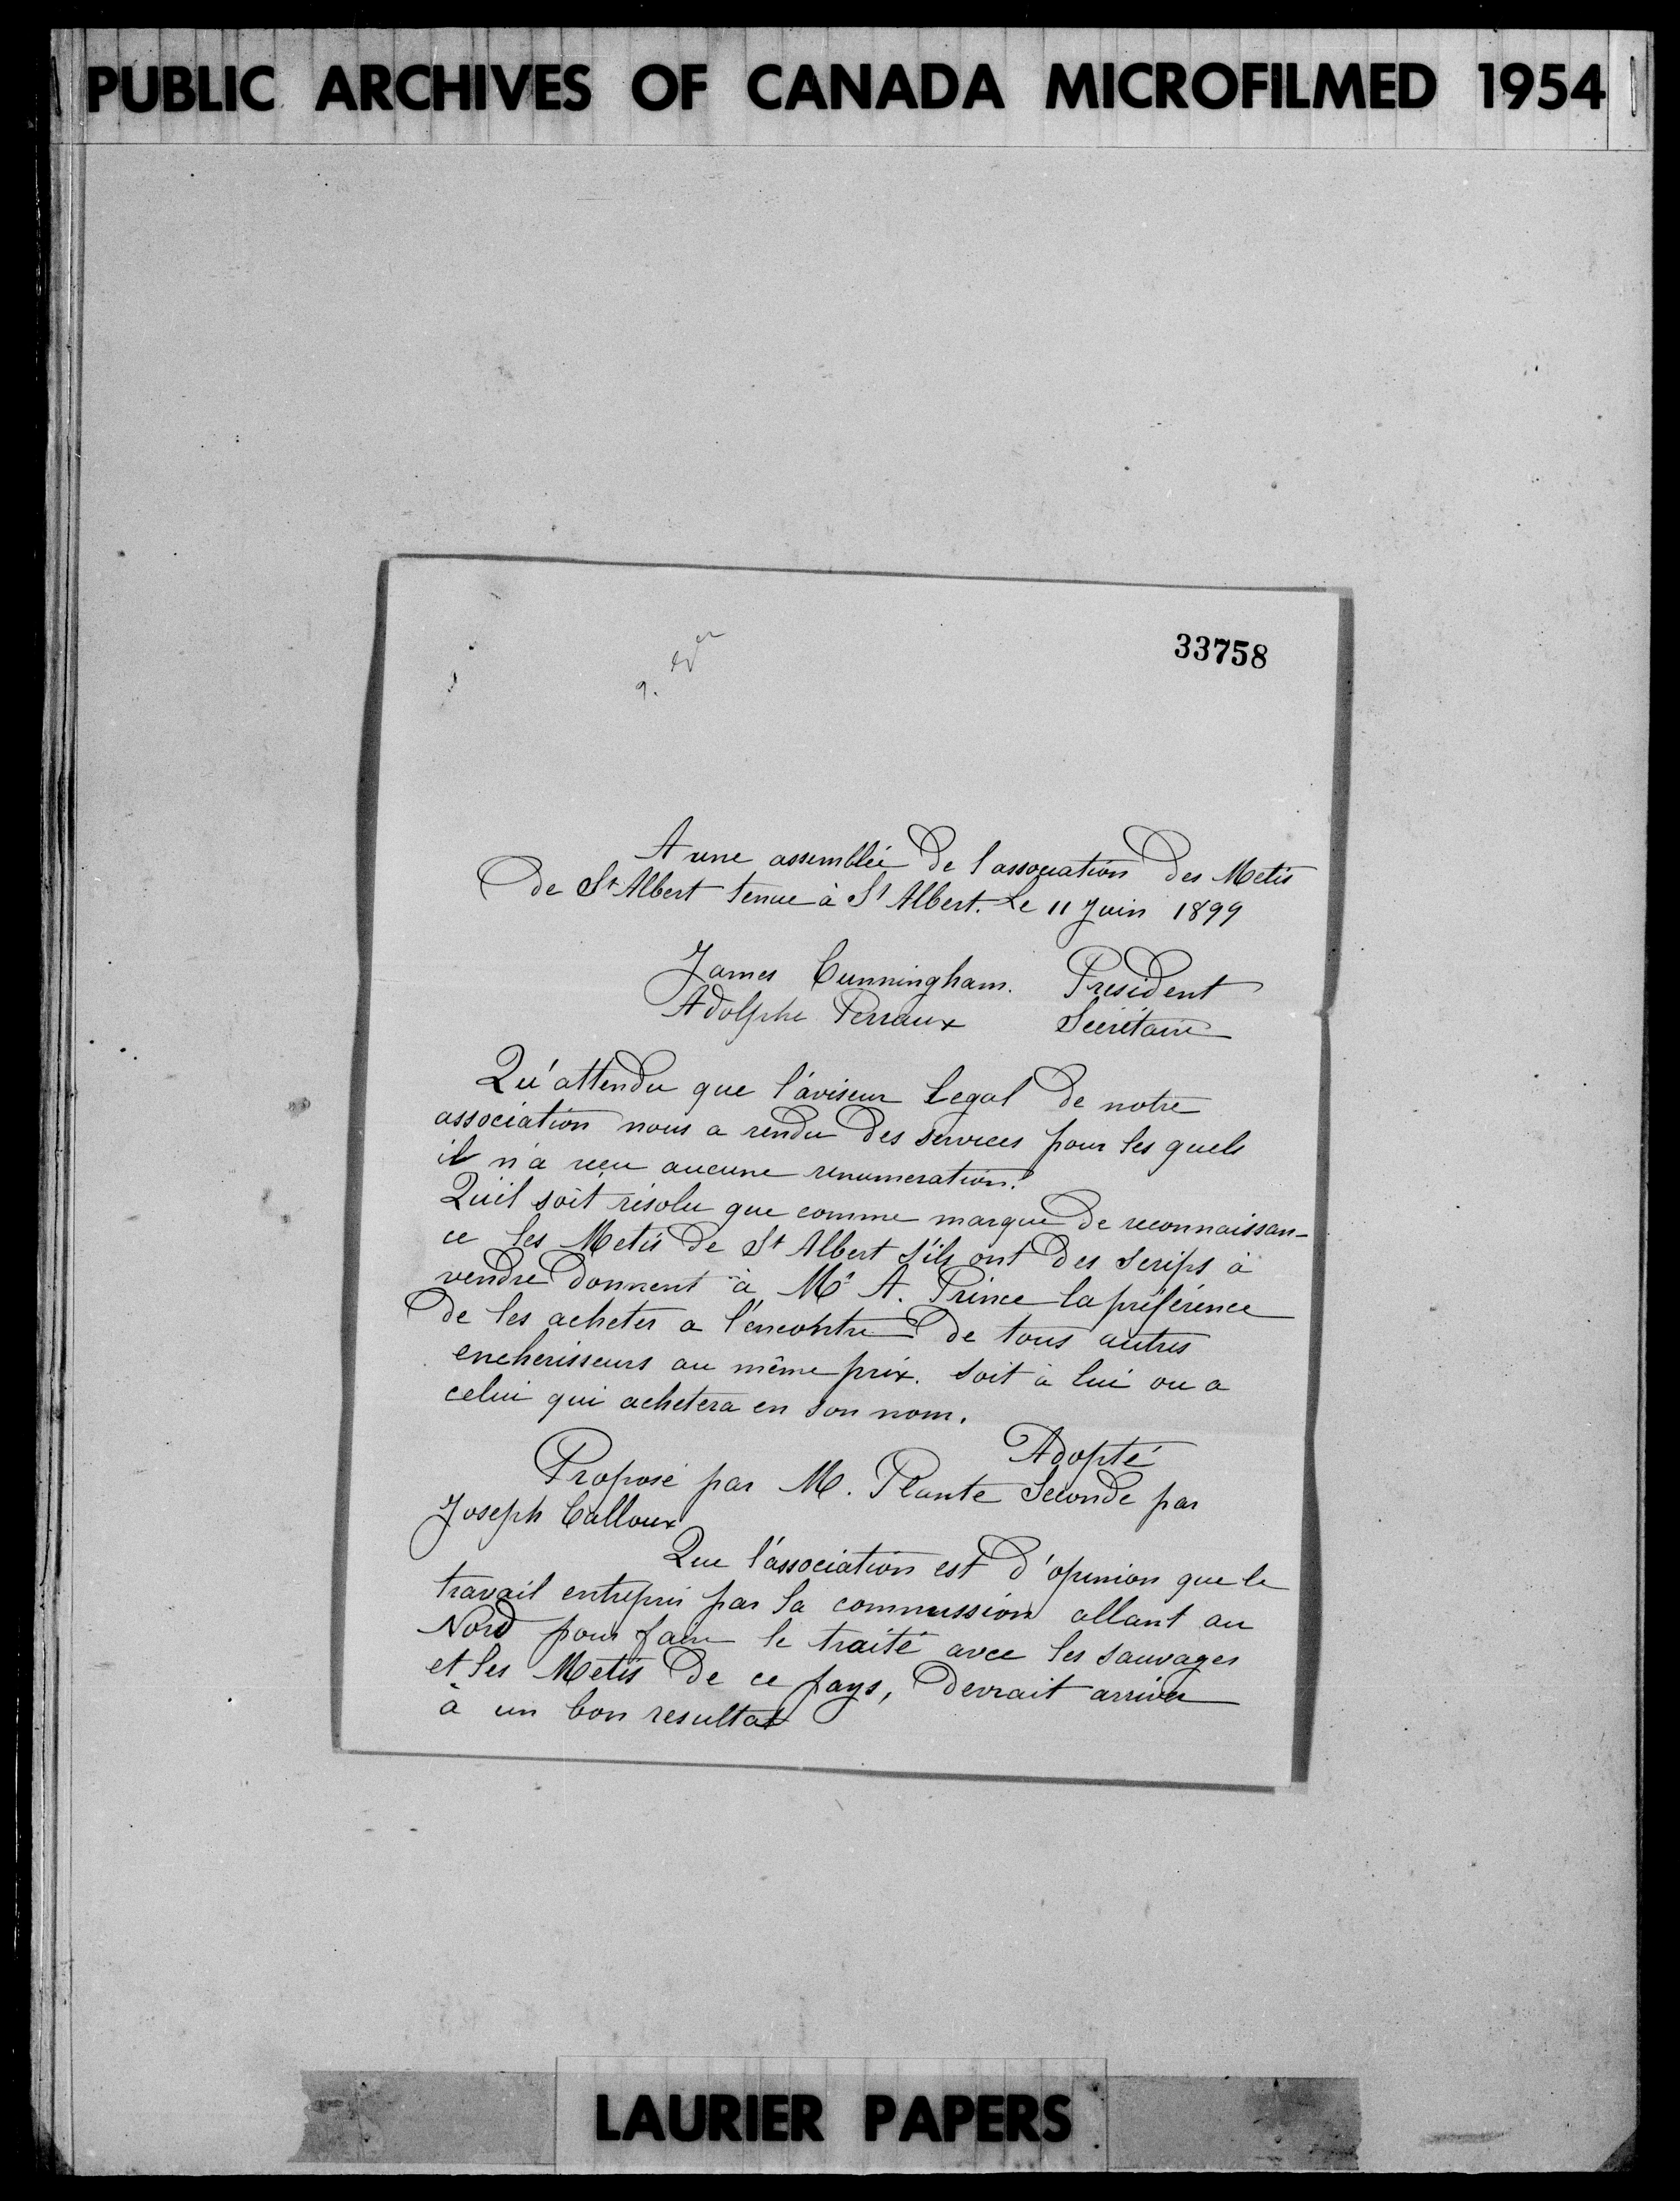 PUBLIC ARCHIVES OF CANADA MICROFILMED 1954
33758
A une assemblée de l'association des Metis
de St Albert tenue à St Albert. Le 11 Juin 1899
James Cunningham. President
Adolphe Perraux Secrétaire
Qu'attendu que l'aviseur Legal de notre
association nous a rendu des services pour les quels
il n'a reçu aucune renumeration.
Qu'il soit résolu que comme marque de reconnaissan-
ce les Metis de St Albert s'ils ont des scrips à
vendre donnent à Mr A. Prince la préférence
de les acheter a l'encontre de tous autres
encherisseurs au même prix. soit à lui ou a
celui qui achetera en son nom.
Adopté
Proposé par M. Plante Secondé par
Joseph Calloux
Que l'association est d'opinion que le
travail entrepris par la commission allant au
Nord pour faire le traité avec les sauvages
et les Metis de ce pays, devrait arriver
à un bon resultat
LAURIER PAPERS